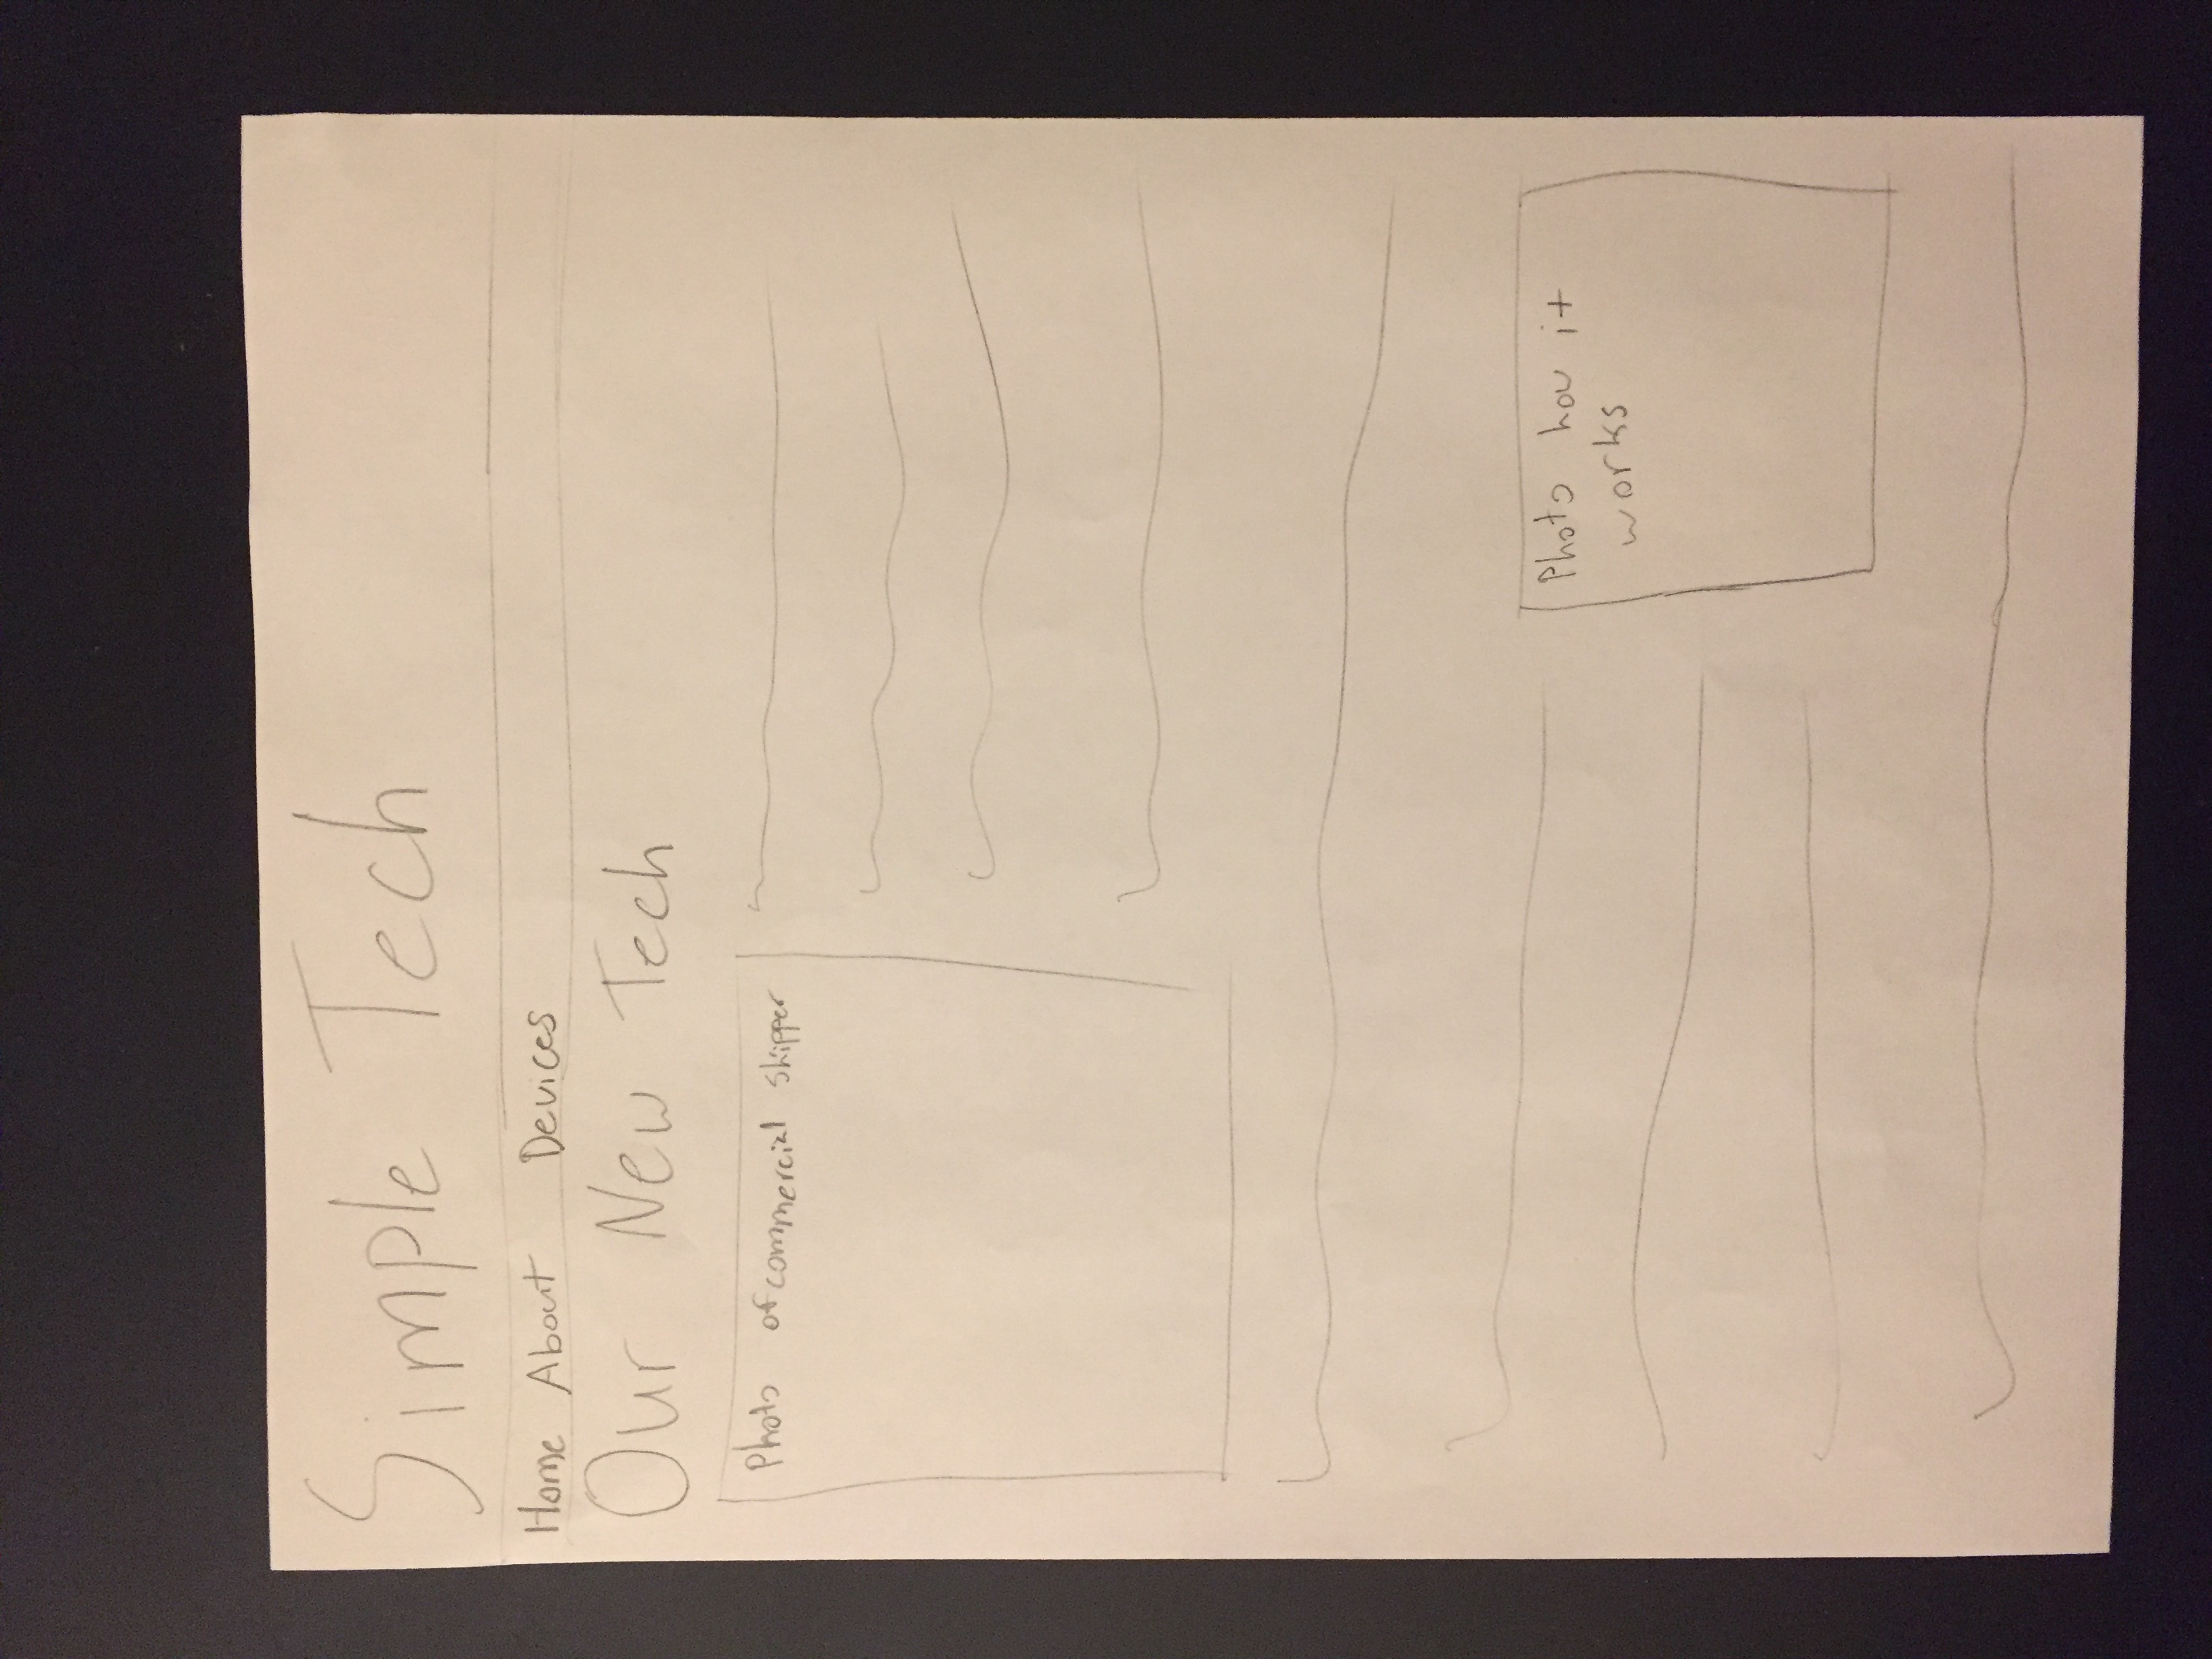 Simple Tech
Home About Devices
Our New Tech
Photo of commercial shipper
Photo how it
works